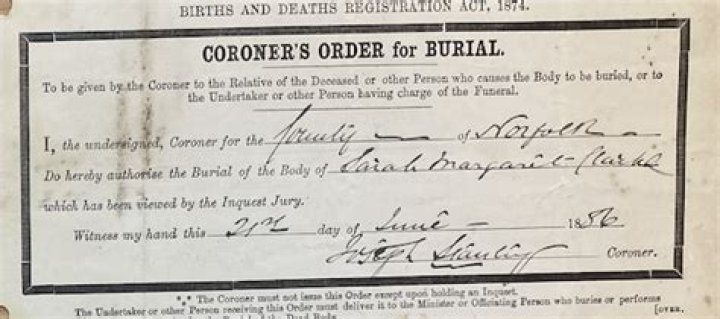 BIRTHS AND DEATHS REGISTRATION ACT, 1874.
CORONER'S ORDER for BURIAL.
To be given by the Coroner to the Relative of the Deceased or other Person who causes the Body to be buried, or to
the Undertaker or other Person having charge of the Funeral.
I, the undersigned, Coroner for the County of Norfolk
Do hereby authorise the Burial of the Body of Sarah Margaret Clarke
which has been viewed by the Inquest Jury.
Witness my hand this 21st day of June 1886
Joseph Coroner.
*** The Coroner must not issue this Order except upon holding an Inquest.
The Undertaker or other Person receiving this Order must deliver it to the Minister or Officiating Person who buries or performs
[OVER.